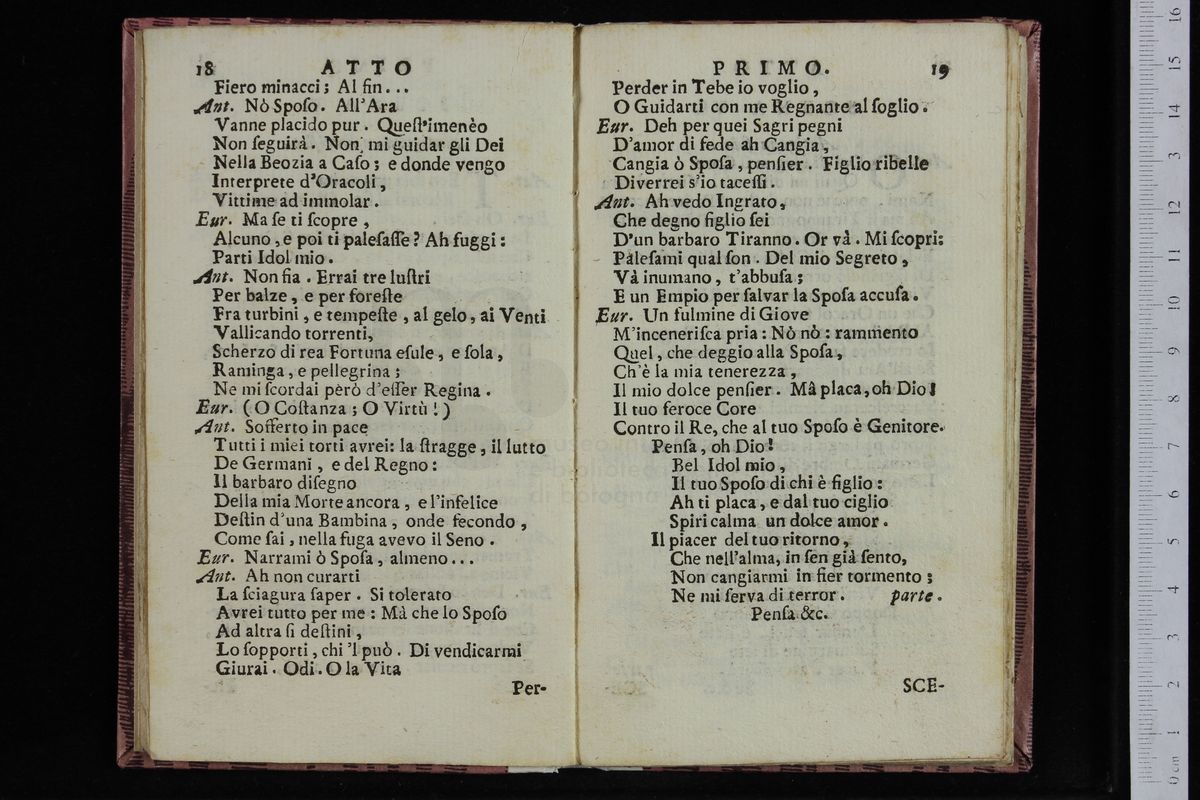 18 ATTO
Fiero minacci; Al fin...
Ant. Nò Spoſo. All'Ara
Vanne placido pur. Queſt'imenèo
Non ſeguirà. Non mi guidar gli Dei
Nella Beozia a Caſo; e donde vengo
Interprete d'Oracoli,
Vittime ad immolar.
Eur. Ma ſe ti ſcopre,
Alcuno, e poi ti paleſaſſe? Ah fuggi:
Parti Idol mio.
Ant. Non fia. Errai tre luſtri
Per balze, e per foreſte
Fra turbini, e tempeſte, al gelo, ai Venti
Vallicando torrenti,
Scherzo di rea Fortuna eſule, e ſola,
Raminga, e pellegrina;
Ne mi ſcordai però d'eſſer Regina.
Eur. (O Coſtanza; O Virtù!)
Ant. Sofferto in pace
Tutti i miei torti avrei: la ſtragge, il lutto
De Germani, e del Regno:
Il barbaro diſegno
Della mia Morte ancora, e l'infelice
Deſtin d'una Bambina, onde fecondo,
Come ſai, nella fuga avevo il Seno.
Eur. Narrami ò Spoſa, almeno...
Ant. Ah non curarti
La ſciagura ſaper. Si tolerato
Avrei tutto per me: Mà che lo Spoſo
Ad altra ſi deſtini,
Lo ſopporti, chi 'l può. Di vendicarmi
Giurai. Odi. O la Vita
Per-
PRIMO. 19
Perder in Tebe io voglio,
O Guidarti con me Regnante al ſoglio.
Eur. Deh per quei Sagri pegni
D'amor di fede ah Cangia,
Cangia ò Spoſa, penſier. Figlio ribelle
Diverrei s'io taceſſi.
Ant. Ah vedo Ingrato,
Che degno figlio ſei
D'un barbaro Tiranno. Or và. Mi ſcopri:
Paleſami qual ſon. Del mio Segreto,
Và inumano, t'abbuſa;
E un Empio per ſalvar la Spoſa accuſa.
Eur. Un fulmine di Giove
M'inceneriſca pria: Nò nò: rammento
Quel, che deggio alla Spoſa,
Ch'è la mia tenerezza,
Il mio dolce penſier. Mà placa, oh Dio!
Il tuo feroce Core
Contro il Re, che al tuo Spoſo è Genitore.
Penſa, oh Dio!
Bel Idol mio,
Il tuo Spoſo di chi è figlio:
Ah ti placa, e dal tuo ciglio
Spiri calma un dolce amor.
Il piacer del tuo ritorno,
Che nell'alma, in ſen già ſento,
Non cangiarmi in fier tormento;
Ne mi ſerva di terror. parte.
Penſa &c.
SCE-